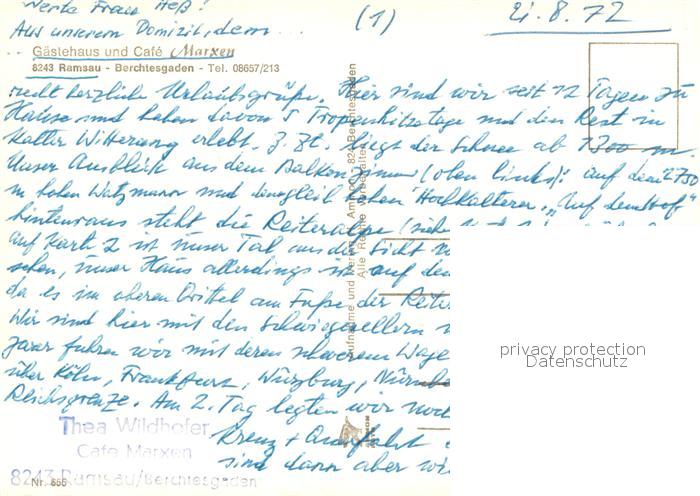 Werte Frau Heß!
(1)
21.8.72
Aus unserem Domizil, dem...
Gästehaus und Café Marxen
8243 Ramsau - Berchtesgaden - Tel. 08657/213
recht herzliche Urlaubsgrüße. Hier sind wir seit 12 Tagen zu
Hause und haben davon 5 Tropenhitzetage und den Rest in
kalter Witterung erlebt. Z. Zt. liegt der Schnee ab 1700 m.
Unser Ausblick aus dem Balkonzimmer (oben links): auf dem 2750
m hohen Watzmann und den gleich hohen Hochkalteren. „Auf dem Hof"
hintenraus steht die Reiteralpe (siehe
Auf Karte 2 ist unser Tal aus die Sicht
sehen, unser Haus allerdings ist auf dem
da es im oberen Drittel am Fuße der Reiter
Wir sind hier mit den Schwiegereltern
zwar fuhren wir mit deren schwerem Wage
über Köln, Frankfurt, Würzburg, Nürnbe
Reichsgrenze. Am 2. Tag legten wir noch
Kreuz + Querfahrt
sind dann aber wi
Thea Wildhofer
Cafe Marxen
8243 Ramsau/Berchtesgaden
Nr. 655
Aufnahme und Verlag 8240 Berchtesgaden
Alle Rechte vorbehalten
privacy protection
Datenschutz